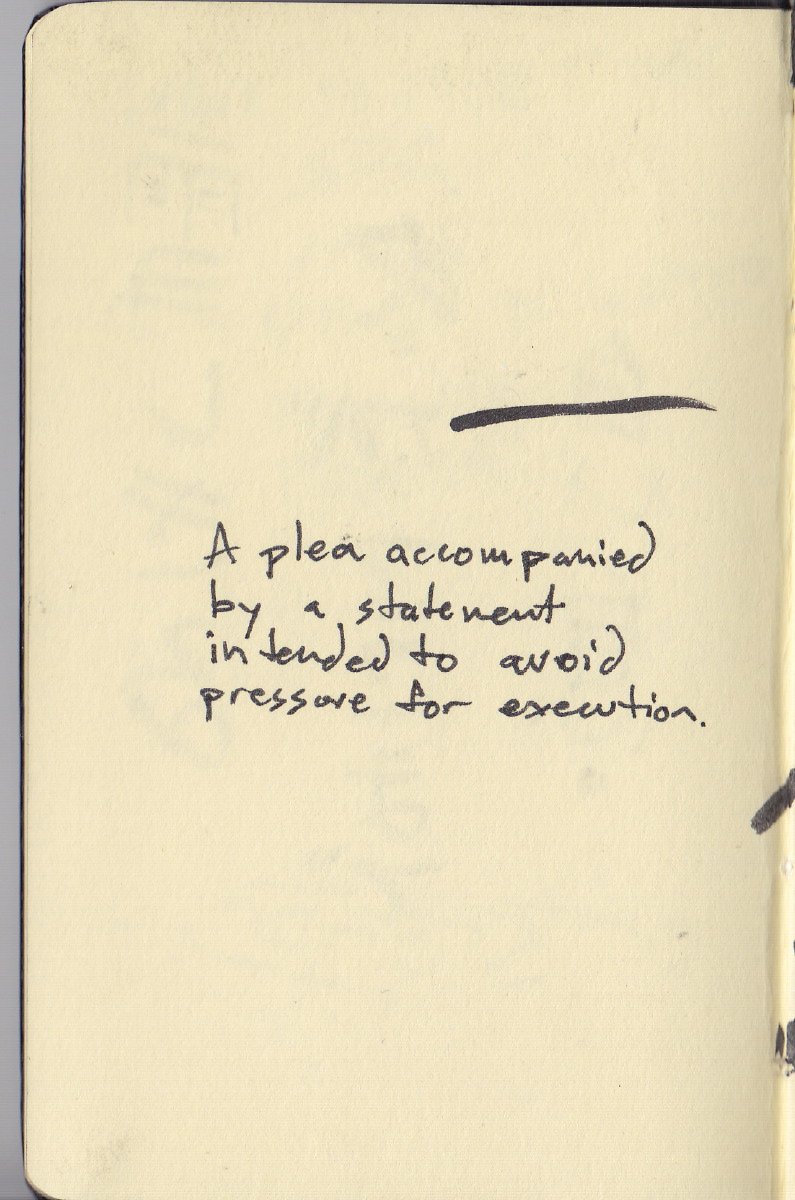 A plea accompanied
by a statement
intended to avoid
pressure for execution.